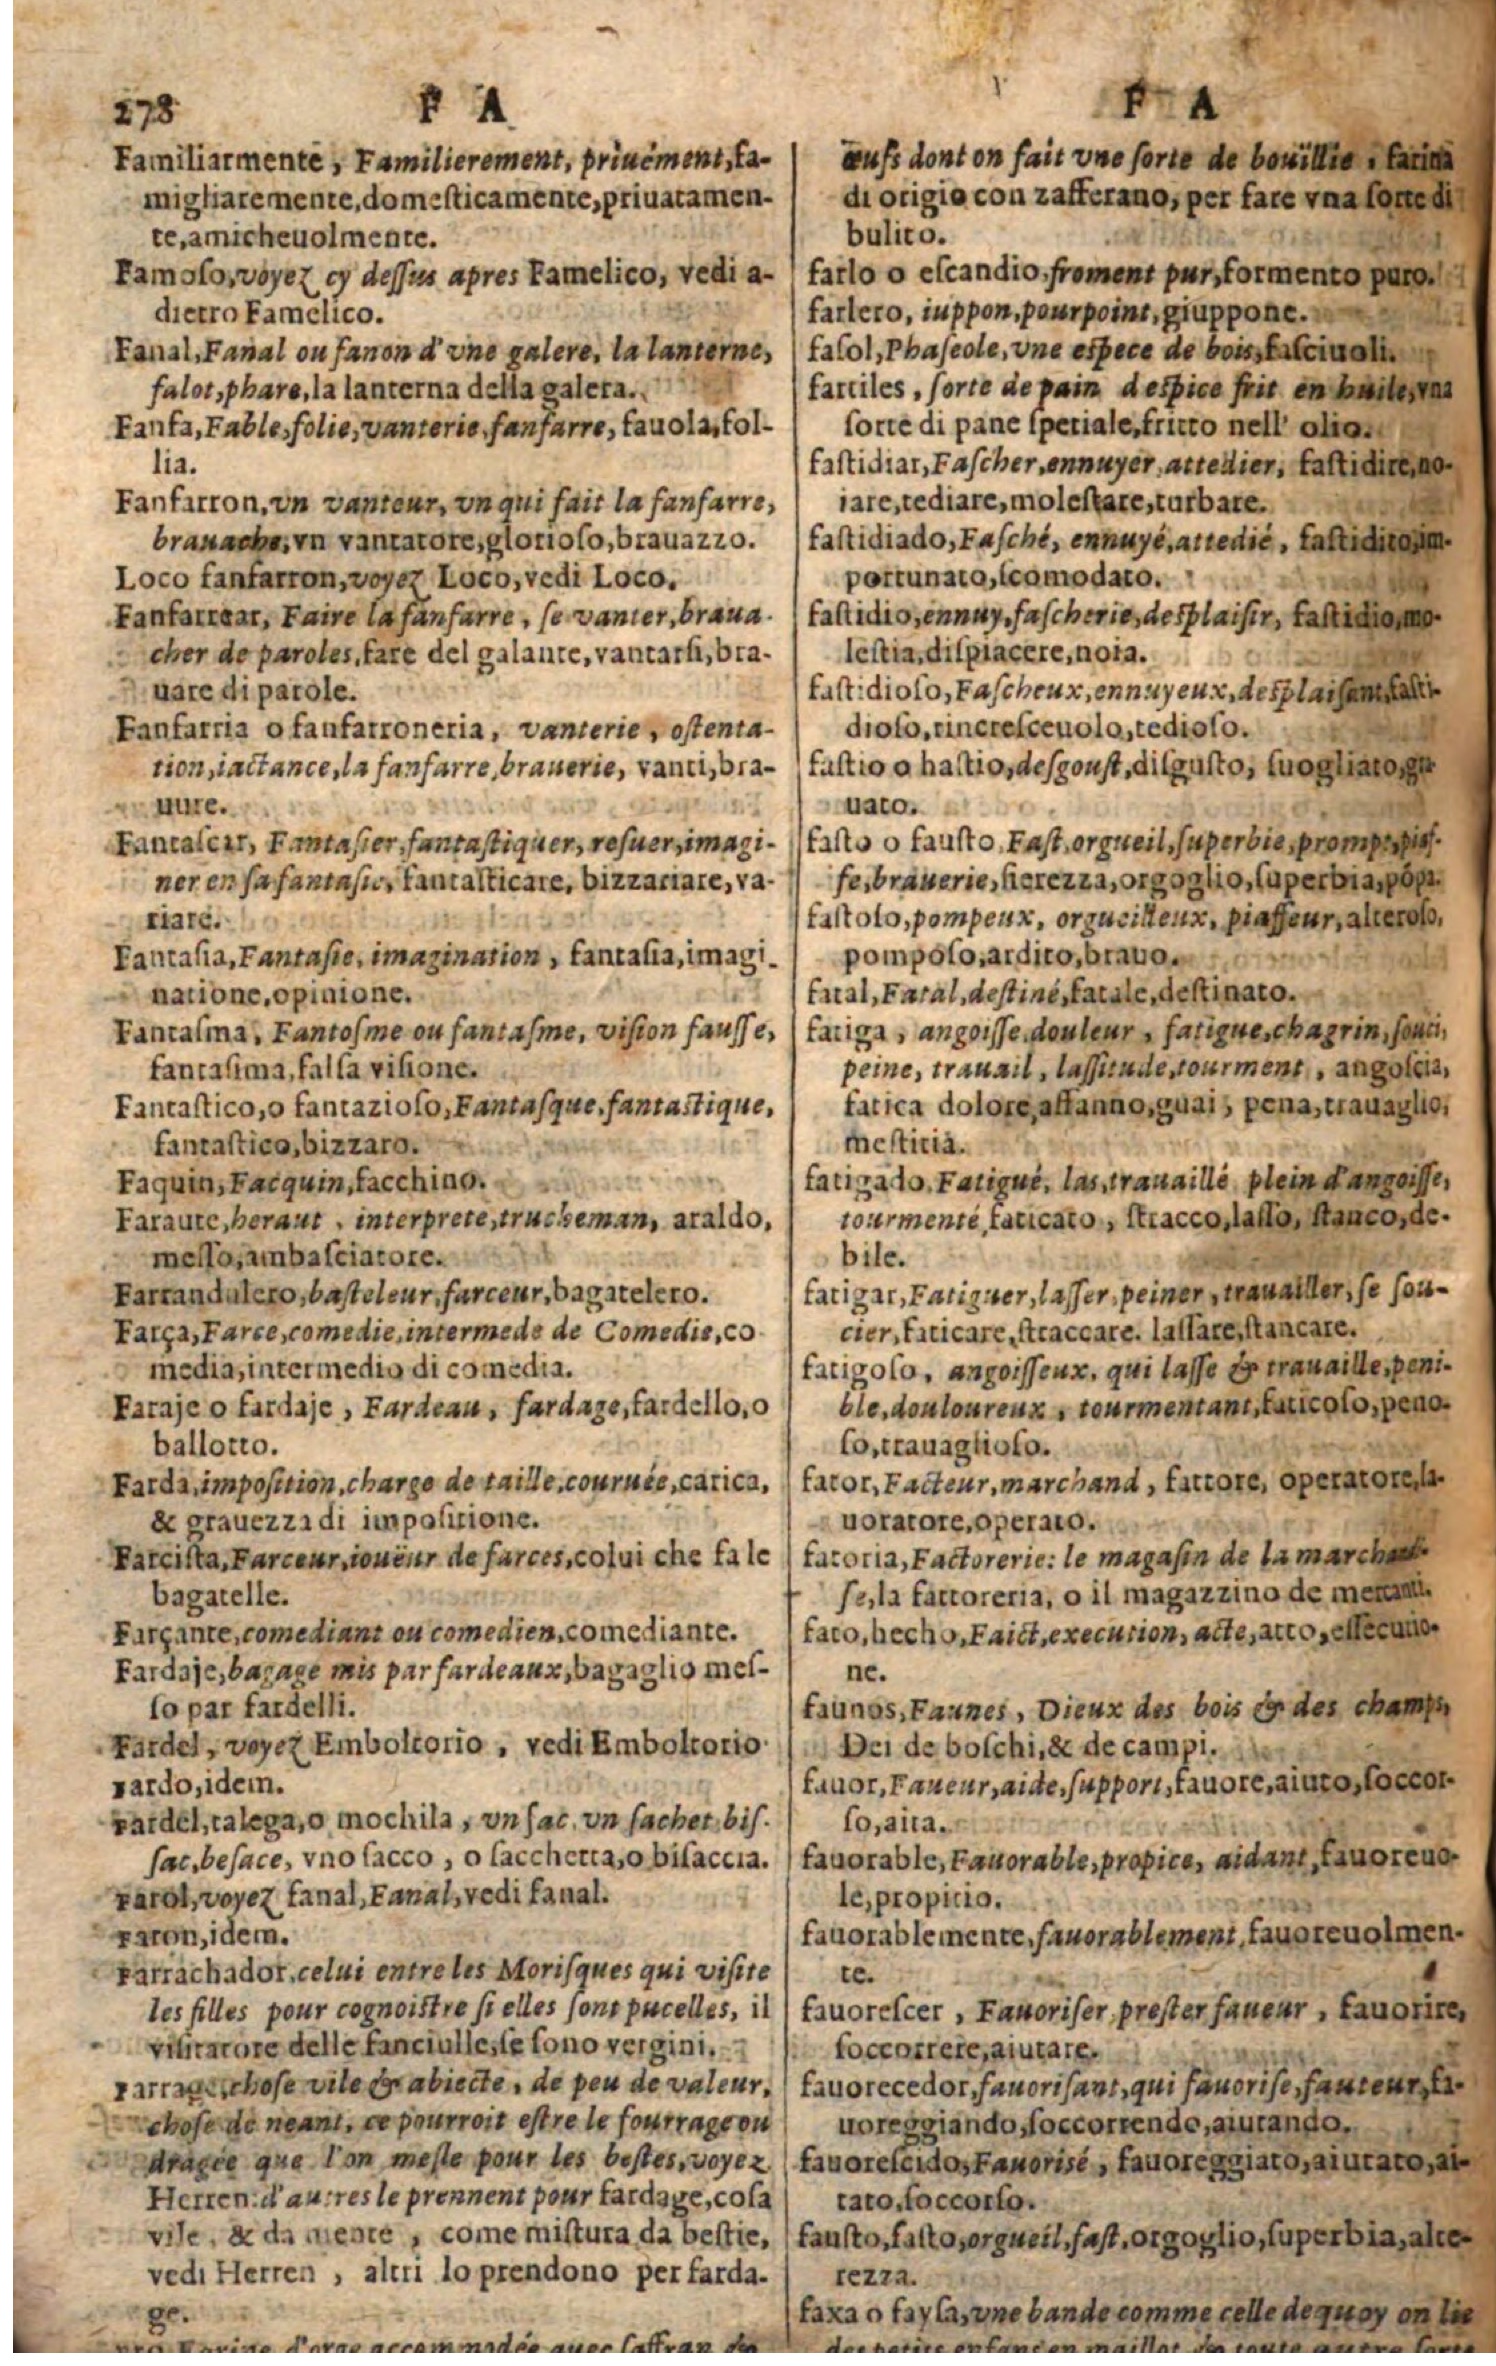 278 F A
Familiarmente, Familierement, priuément, fa-
migliaremente, domesticamente, priuatamen-
te, amicheuolmente.
Famoso, voyez cy dessus apres Famelico, vedi a-
dietro Famelico.
Fanal, Fanal ou fanon d'vne galere, la lanterne,
falot, phare, la lanterna della galera.
Fanfa, Fable, folie, vanterie, fanfarre, fauola, fol-
lia.
Fanfarron, vn vanteur, vn qui fait la fanfarre,
brauache, vn vantatore, glorioso, brauazzo.
Loco fanfarron, voyez Loco, vedi Loco.
Fanfarrear, Faire la fanfarre, se vanter, braua-
cher de paroles, fare del galante, vantarsi, bra-
uare di parole.
Fanfarria o fanfarroneria, vanterie, ostenta-
tion, iactance, la fanfarre, brauerie, vanti, bra-
uure.
Fantasear, Fantasier, fantastiquer, resuer, imagi-
ner en sa fantasie, fantasticare, bizzariare, va-
riare.
Fantasia, Fantasie, imagination, fantasia, imagi-
natione, opinione.
Fantasma, Fantosme ou fantasme, vision fausse,
fantasima, falsa visione.
Fantastico, o fantazioso, Fantasque, fantastique,
fantastico, bizzaro.
Faquin, Facquin, facchino.
Faraute, heraut, interprete, trucheman, araldo,
messo, ambasciatore.
Farrandulero, basteleur, farceur, bagatelero.
Farça, Farce, comedie, intermede de Comedie, co
media, intermedio di comedia.
Faraje o fardaje, Fardeau, fardage, fardello, o
ballotto.
Farda, imposition, charge de taille, couruée, carica,
& grauezza di impositione.
Farcista, Farceur, ioueur de farces, colui che fa le
bagatelle.
Farçante, comediant ou comedien, comediante.
Fardaje, bagage mis par fardeaux, bagaglio mes-
so par fardelli.
Fardel, voyez Emboltorio, vedi Emboltorio
Fardo, idem.
Fardel, talega, o mochila, vn sac, vn sachet bis-
sac, besace, vno sacco, o sacchetta, o bisaccia.
Farol, voyez fanal, Fanal, vedi fanal.
Faron, idem.
Farrachador, celui entre les Morisques qui visite
les filles pour cognoistre si elles sont pucelles, il
visitatore delle fanciulle, se sono vergini.
Farrage, chose vile & abiecte, de peu de valeur,
chose de neant, ce pourroit estre le fourrage ou
dragée que l'on mesle pour les bestes, voyez
Herren: d'autres le prennent pour fardage, cosa
vile, & da niente, come mistura da bestie,
vedi Herren, altri lo prendono per farda-
ge.
Farine d'orge accommodée auec saffran &
F A
œufs dont on fait vne sorte de bouïllie, farina
di origio con zafferano, per fare vna sorte di
bulito.
farlo o escandio, froment pur, formento puro.
farlero, iuppon, pourpoint, giuppone.
fasol, Phaseole, vne espece de bois, fasciuoli.
fartiles, sorte de pain d'espice frit en huile, vna
sorte di pane spetiale, fritto nell' olio.
fastidiar, Fascher, ennuyer, attedier, fastidire, no-
iare, tediare, molestare, turbare.
fastidiado, Fasché, ennuyé, attedié, fastidito, im-
portunato, scomodato.
fastidio, ennuy, fascherie, desplaisir, fastidio, mo-
lestia, dispiacere, noia.
fastidioso, Fascheux, ennuyeux, desplaisant, fasti-
dioso, rincresceuolo, tedioso.
fastio o hastio, desgoust, disgusto, suogliato, gra
uato.
fasto o fausto, Fast, orgueil, superbie, prompe, piaf-
fe, brauerie, fierezza, orgoglio, superbia, põpa.
fastoso, pompeux, orgueilleux, piaffeur, alteroso,
pomposo, ardito, brauo.
fatal, Fatal, destiné, fatale, destinato.
fatiga, angoisse, douleur, fatigue, chagrin, souci,
peine, trauail, lassitude, tourment, angoscia,
fatica dolore, affanno, guai, pena, trauaglio,
mestitia.
fatigado, Fatigué, las, trauaillé plein d'angoisse,
tourmenté, faticato, stracco, lasso, stanco, de-
bile.
fatigar, Fatiguer, lasser, peiner, trauailler, se sou-
cier, faticare, straccare. lassare, stancare.
fatigoso, angoisseux, qui lasse & trauaille, peni-
ble, douloureux, tourmentant, faticoso, peno-
so, trauaglioso.
fator, Facteur, marchand, fattore, operatore, la-
uoratore, operato.
fatoria, Factorerie: le magasin de la marchan-
se, la fattoreria, o il magazzino de mercanti.
fato, hecho, Faict, execution, acte, atto, essecutio-
ne.
faunos, Faunes, Dieux des bois & des champs,
Dei de boschi, & de campi.
fauor, Faueur, aide, support, fauore, aiuto, soccor-
so, aita.
fauorable, Fauorable, propice, aidant, fauoreuo-
le, propitio.
fauorablemente, fauorablement, fauoreuolmen-
te.
fauorescer, Fauoriser, prester faueur, fauorire,
soccorrere, aiutare.
fauorecedor, fauorisant, qui fauorise, fauteur, fa-
uoreggiando, soccorrendo, aiutando.
fauorescido, Fauorisé, fauoreggiato, aiutato, ai-
tato, soccorso.
fausto, fasto, orgueil, fast, orgoglio, superbia, alte-
rezza.
faxa o faysa, vne bande comme celle de quoy on lie
des petits enfans en maillot, & toute autre sorte